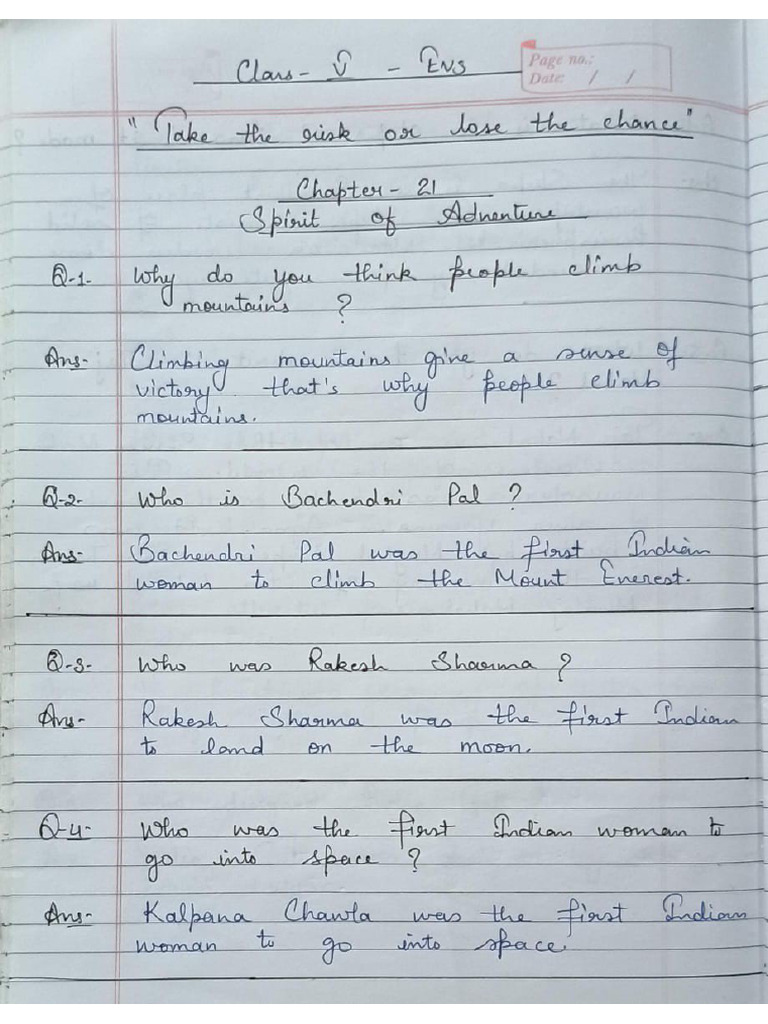 Class - V - EVS
Page no.:
Date: / /
"Take the risk or lose the chance"
Chapter - 21
Spirit of Adventure
Q-1- Why do you think people climb
mountains ?
Ans- Climbing mountains give a sense of
victory that's why people climb
mountains.
Q-2- Who is Bachendri Pal ?
Ans- Bachendri Pal was the first Indian
woman to climb the Mount Everest.
Q-3- Who was Rakesh Sharma ?
Ans- Rakesh Sharma was the first Indian
to land on the moon.
Q-4- Who was the first Indian woman to
go into space ?
Ans- Kalpana Chawla was the first Indian
woman to go into space.